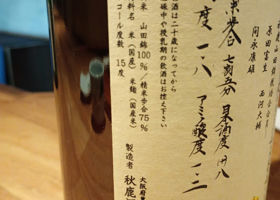 原田富生 西河大輔
岡永康雄
七割五分 日本酒度 +八
度 一・八 アミノ酸度 一・二
酒は二十歳になってから
娠中や授乳期の飲酒はお控え下さい
山田錦100%/精米歩合75%
料名 米(国産) 米麹(国産米)
コール度数 15度
製造者 秋鹿
大阪府